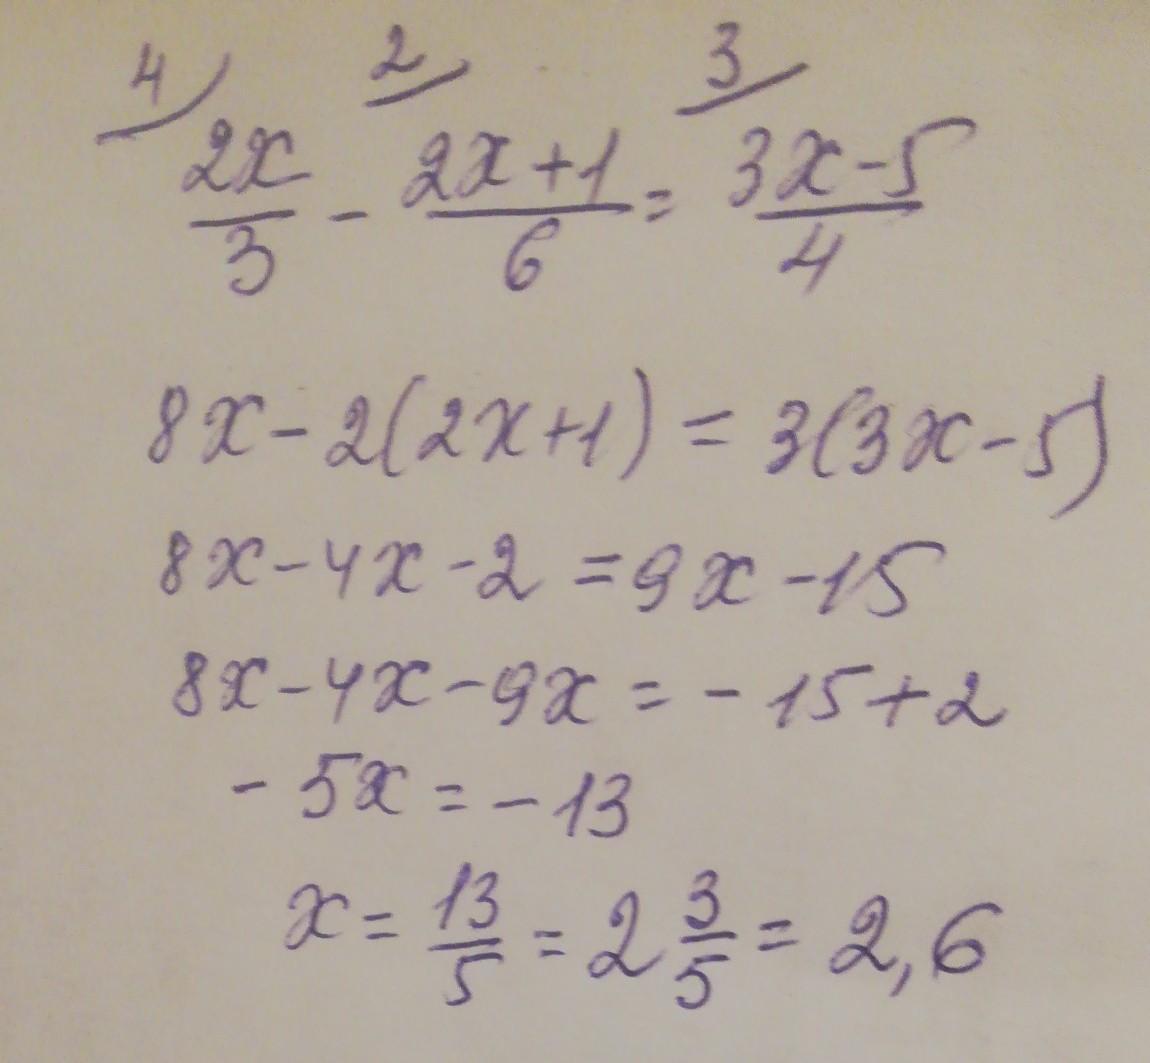 4/ 2/ 3/
2x/3 - (2x+1)/6 = (3x-5)/4
8x - 2(2x+1) = 3(3x-5)
8x - 4x - 2 = 9x - 15
8x - 4x - 9x = - 15 + 2
- 5x = - 13
x = 13/5 = 2 3/5 = 2,6